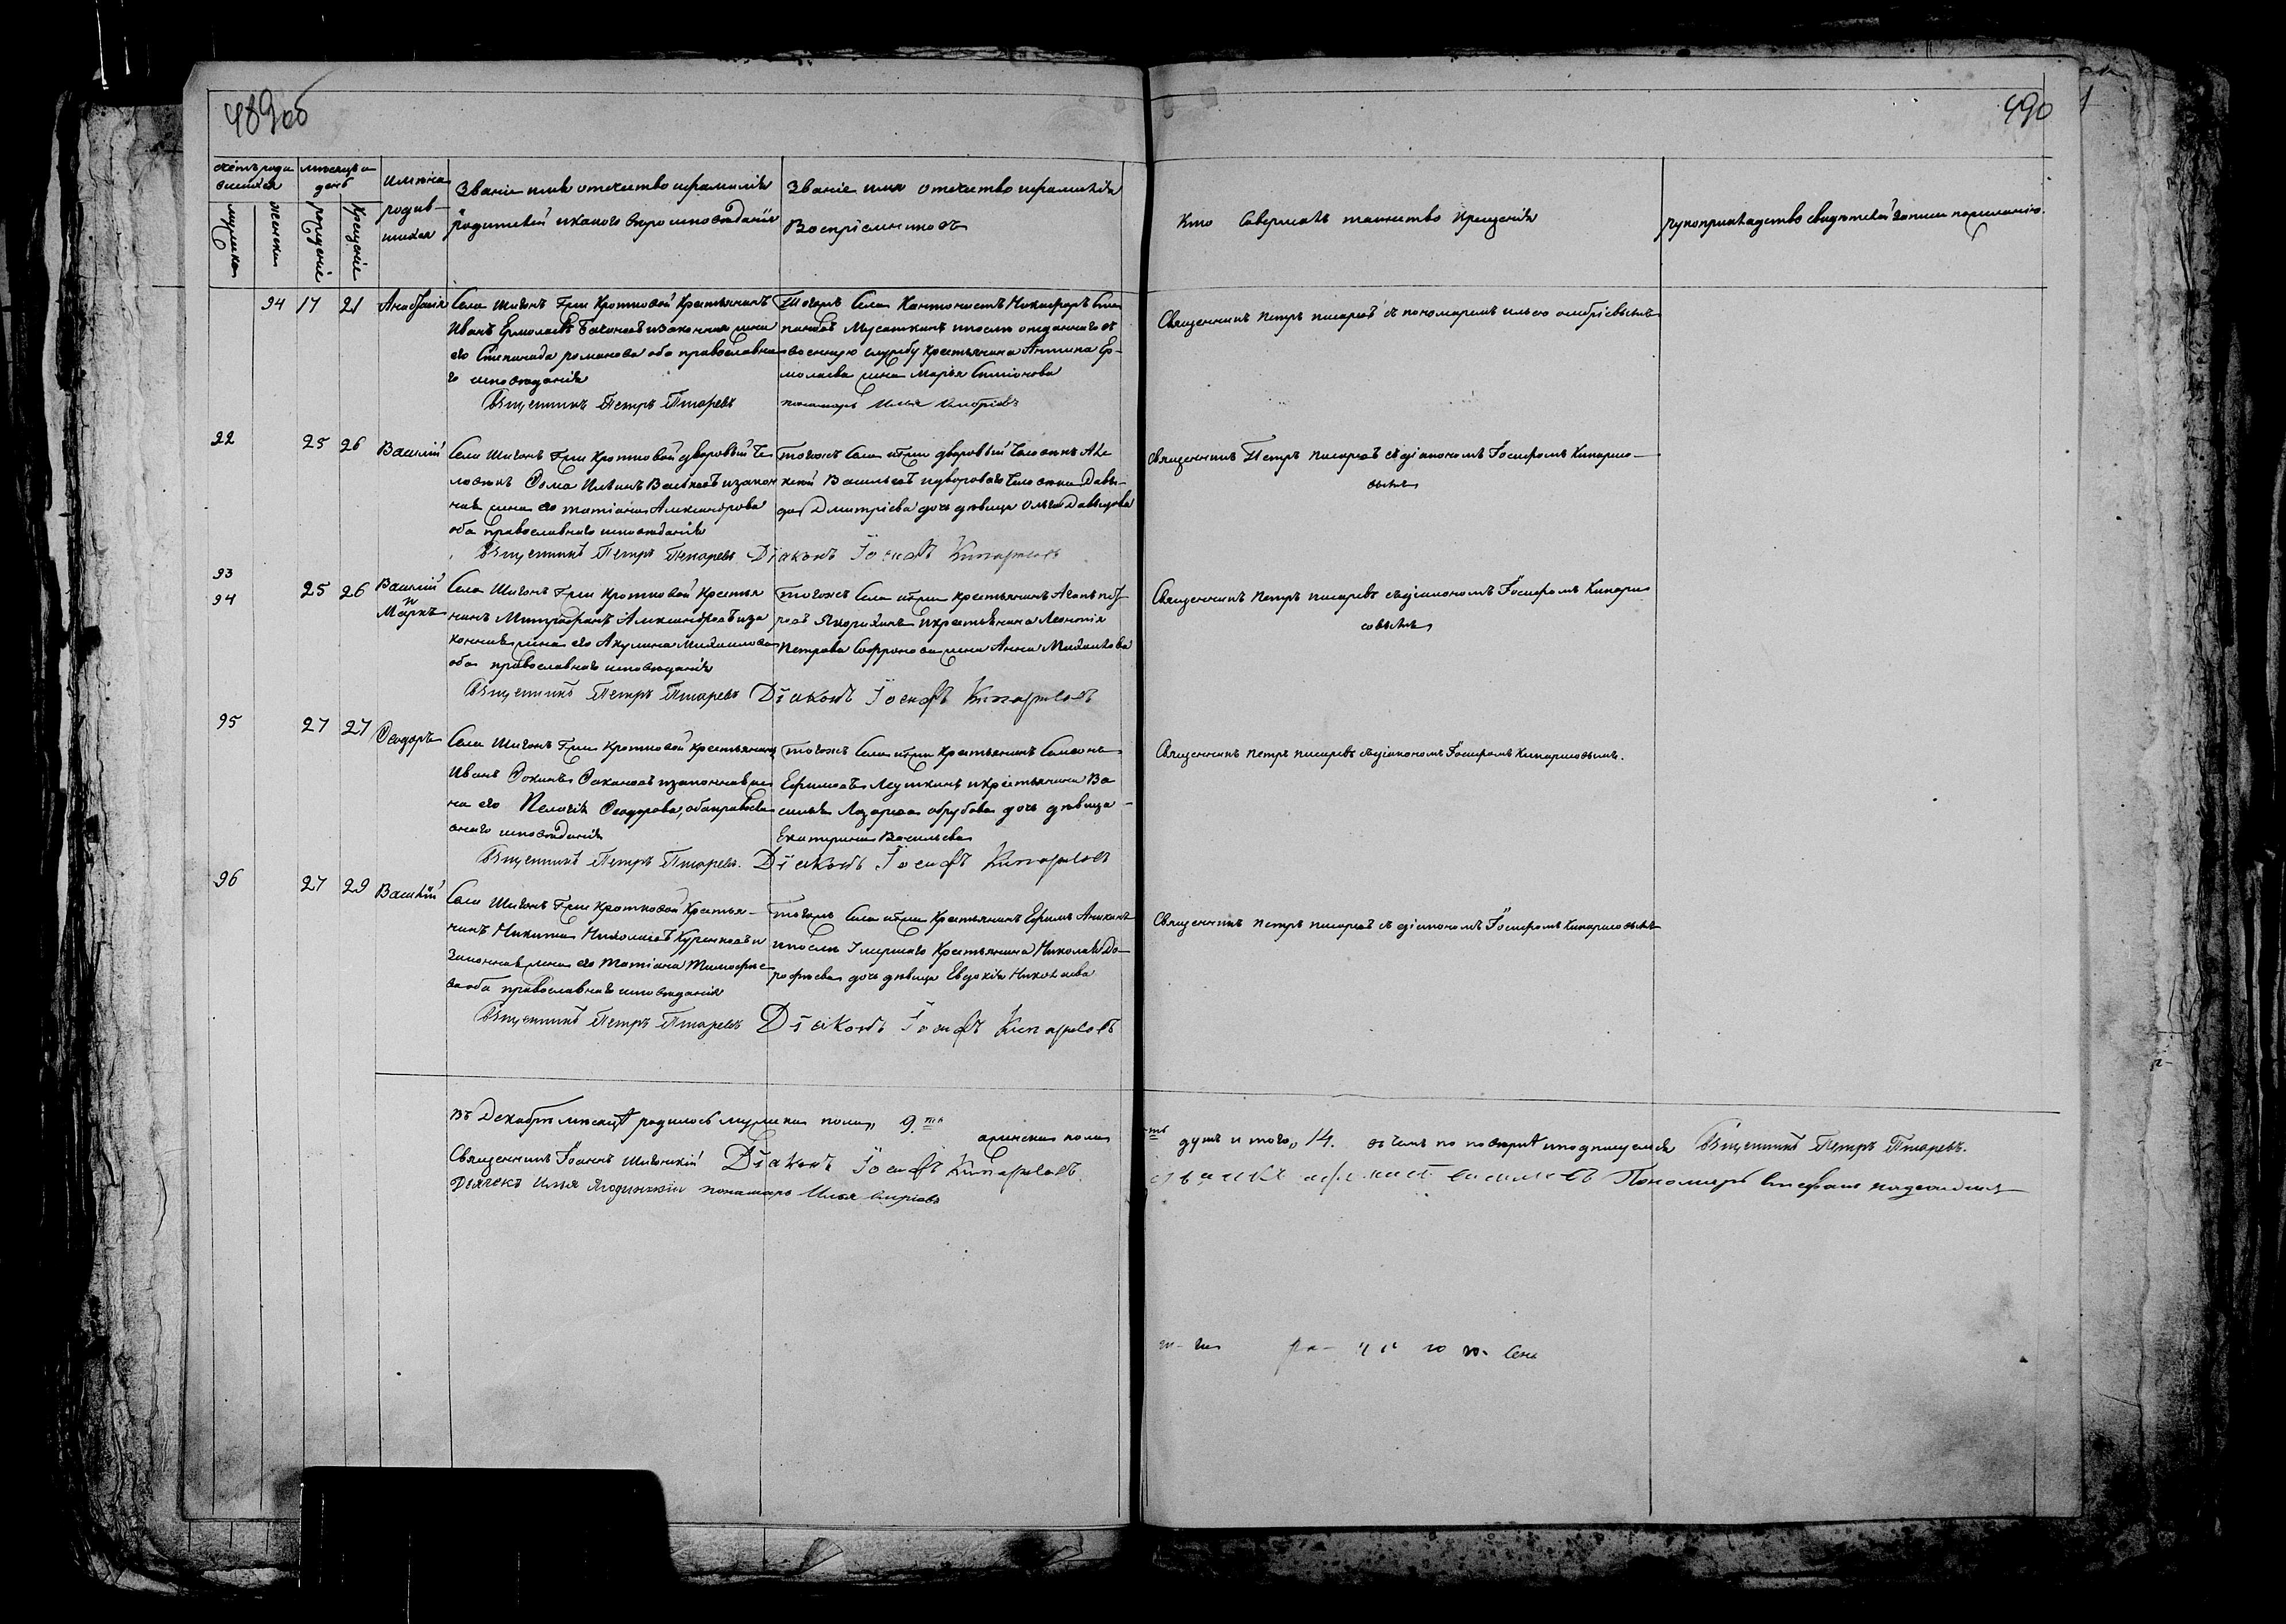 489об
490
счетъ роди
вшихся
мѣсяцъ и
день
мужеска
женска
рожденіе
крещеніе
имѣна
родив-
шихся
Званіе имя отечество ифамилія
родителей икакого вероисповѣданія
Званіе имя отечество ифамилія
Воспріемниковъ
Кто Совершалъ таинство Крещенія
рукоприкладство свидѣтелей записи пожеланію.
94 17 21
Села Шигонъ Гжи Кротковой Крестьянинъ
Иванъ Ермолаевъ изаконная жена
его Степанида романова оба православна
го исповѣданія
Священникъ Петръ Писаревъ
Тогожъ Села Кантонистъ Никифоръ Сте
пановъ Мусаткинъ ипосли отданнаго въ
военную службу крестьянина Антипа Ер-
молаева жена Марья Симіонова
пономарь Илья
Священникъ Петръ писаревъ съ пономаремъ ильею
22 25 26 Василий
Села Шигонъ Гжи Кротковой дворовый Че
ловѣкъ Фома Ильинъ изакон
ная жена его татіана Александрова
оба православнаго исповѣданія
Священникъ Петръ Писаревъ Діаконъ Іосифъ Кипарисовъ
тогожъ Села итжи дворовый Человѣкъ Але
ксей Васильевъ идвороваго Человѣка Давы-
да Дмитріева дочь дѣвица Ольга Давыдова
Священникъ Петръ писаревъ съдіакономъ Іосифомъ Кипарисо-
вымъ
93
94 25 26 Василий
и
Маркъ
Села Шигонъ Гжи Кротковой Крестья
нинъ Митрофанъ Александровъ иза
конная жена его Акулина Михаилова
оба православнаго исповѣданія
Священникъ Петръ Писаревъ Діаконъ Іосифъ Кипарисовъ
тогожъ Села итжи крестьянинъ Агапъ
икрестьянина Леонтія
Петрова Софронова жена Анна Михайлова
Священникъ Петръ писаревъ съдіакономъ Іосифомъ Кипари
совымъ
95 27 27 Феодоръ
Села Шигонъ Гжи Кротковой крестьянинъ
Иванъ Фокинъ изаконная же
на его Пелагія Феодорова, оба правосла
внаго исповѣданія
Священникъ Петръ Писаревъ. Діаконъ Іосифъ Кипарисовъ
тогожъ Села итжи Крестьянинъ
Ефимовъ икрестьянина Ва
силья Лазарева дочь дѣвица
Екатерина Васильева
Священникъ Петръ писаревъ съдіакономъ Іосифомъ Кипарисовымъ.
96 27 29 Василій
Села Шигонъ Гжи Кротковой Крестья-
нинъ Никита Николаевъ Куренковъ и
Законная жена его Татіана Тимофѣе
ва оба православнаго исповѣданія
Священникъ Петръ Писаревъ Діаконъ Іосифъ Кипарисовъ
тогожъ Села итжи Крестьянинъ Ефимъ Аникинъ
ипосли Умершаго Крестьянина Николая До-
рофѣева дочь дѣвица Евдокія Николаева
Священникъ Петръ писаревъ съ діакономъ Іосифомъ Кипарисовымъ
Въ Декабрѣ мѣсяцѣ родилось мужеска пола, 9.
душъ итого, 14. въ чемъ по повѣркѣ иподписуемся Священникъ Петръ Писаревъ.
Священникъ Іоаннъ Шигонскій Діаконъ Іосифъ Кипарисовъ
Дьячекъ Илья Ягодинскій пономарь Илья
Пономарь Стефанъ